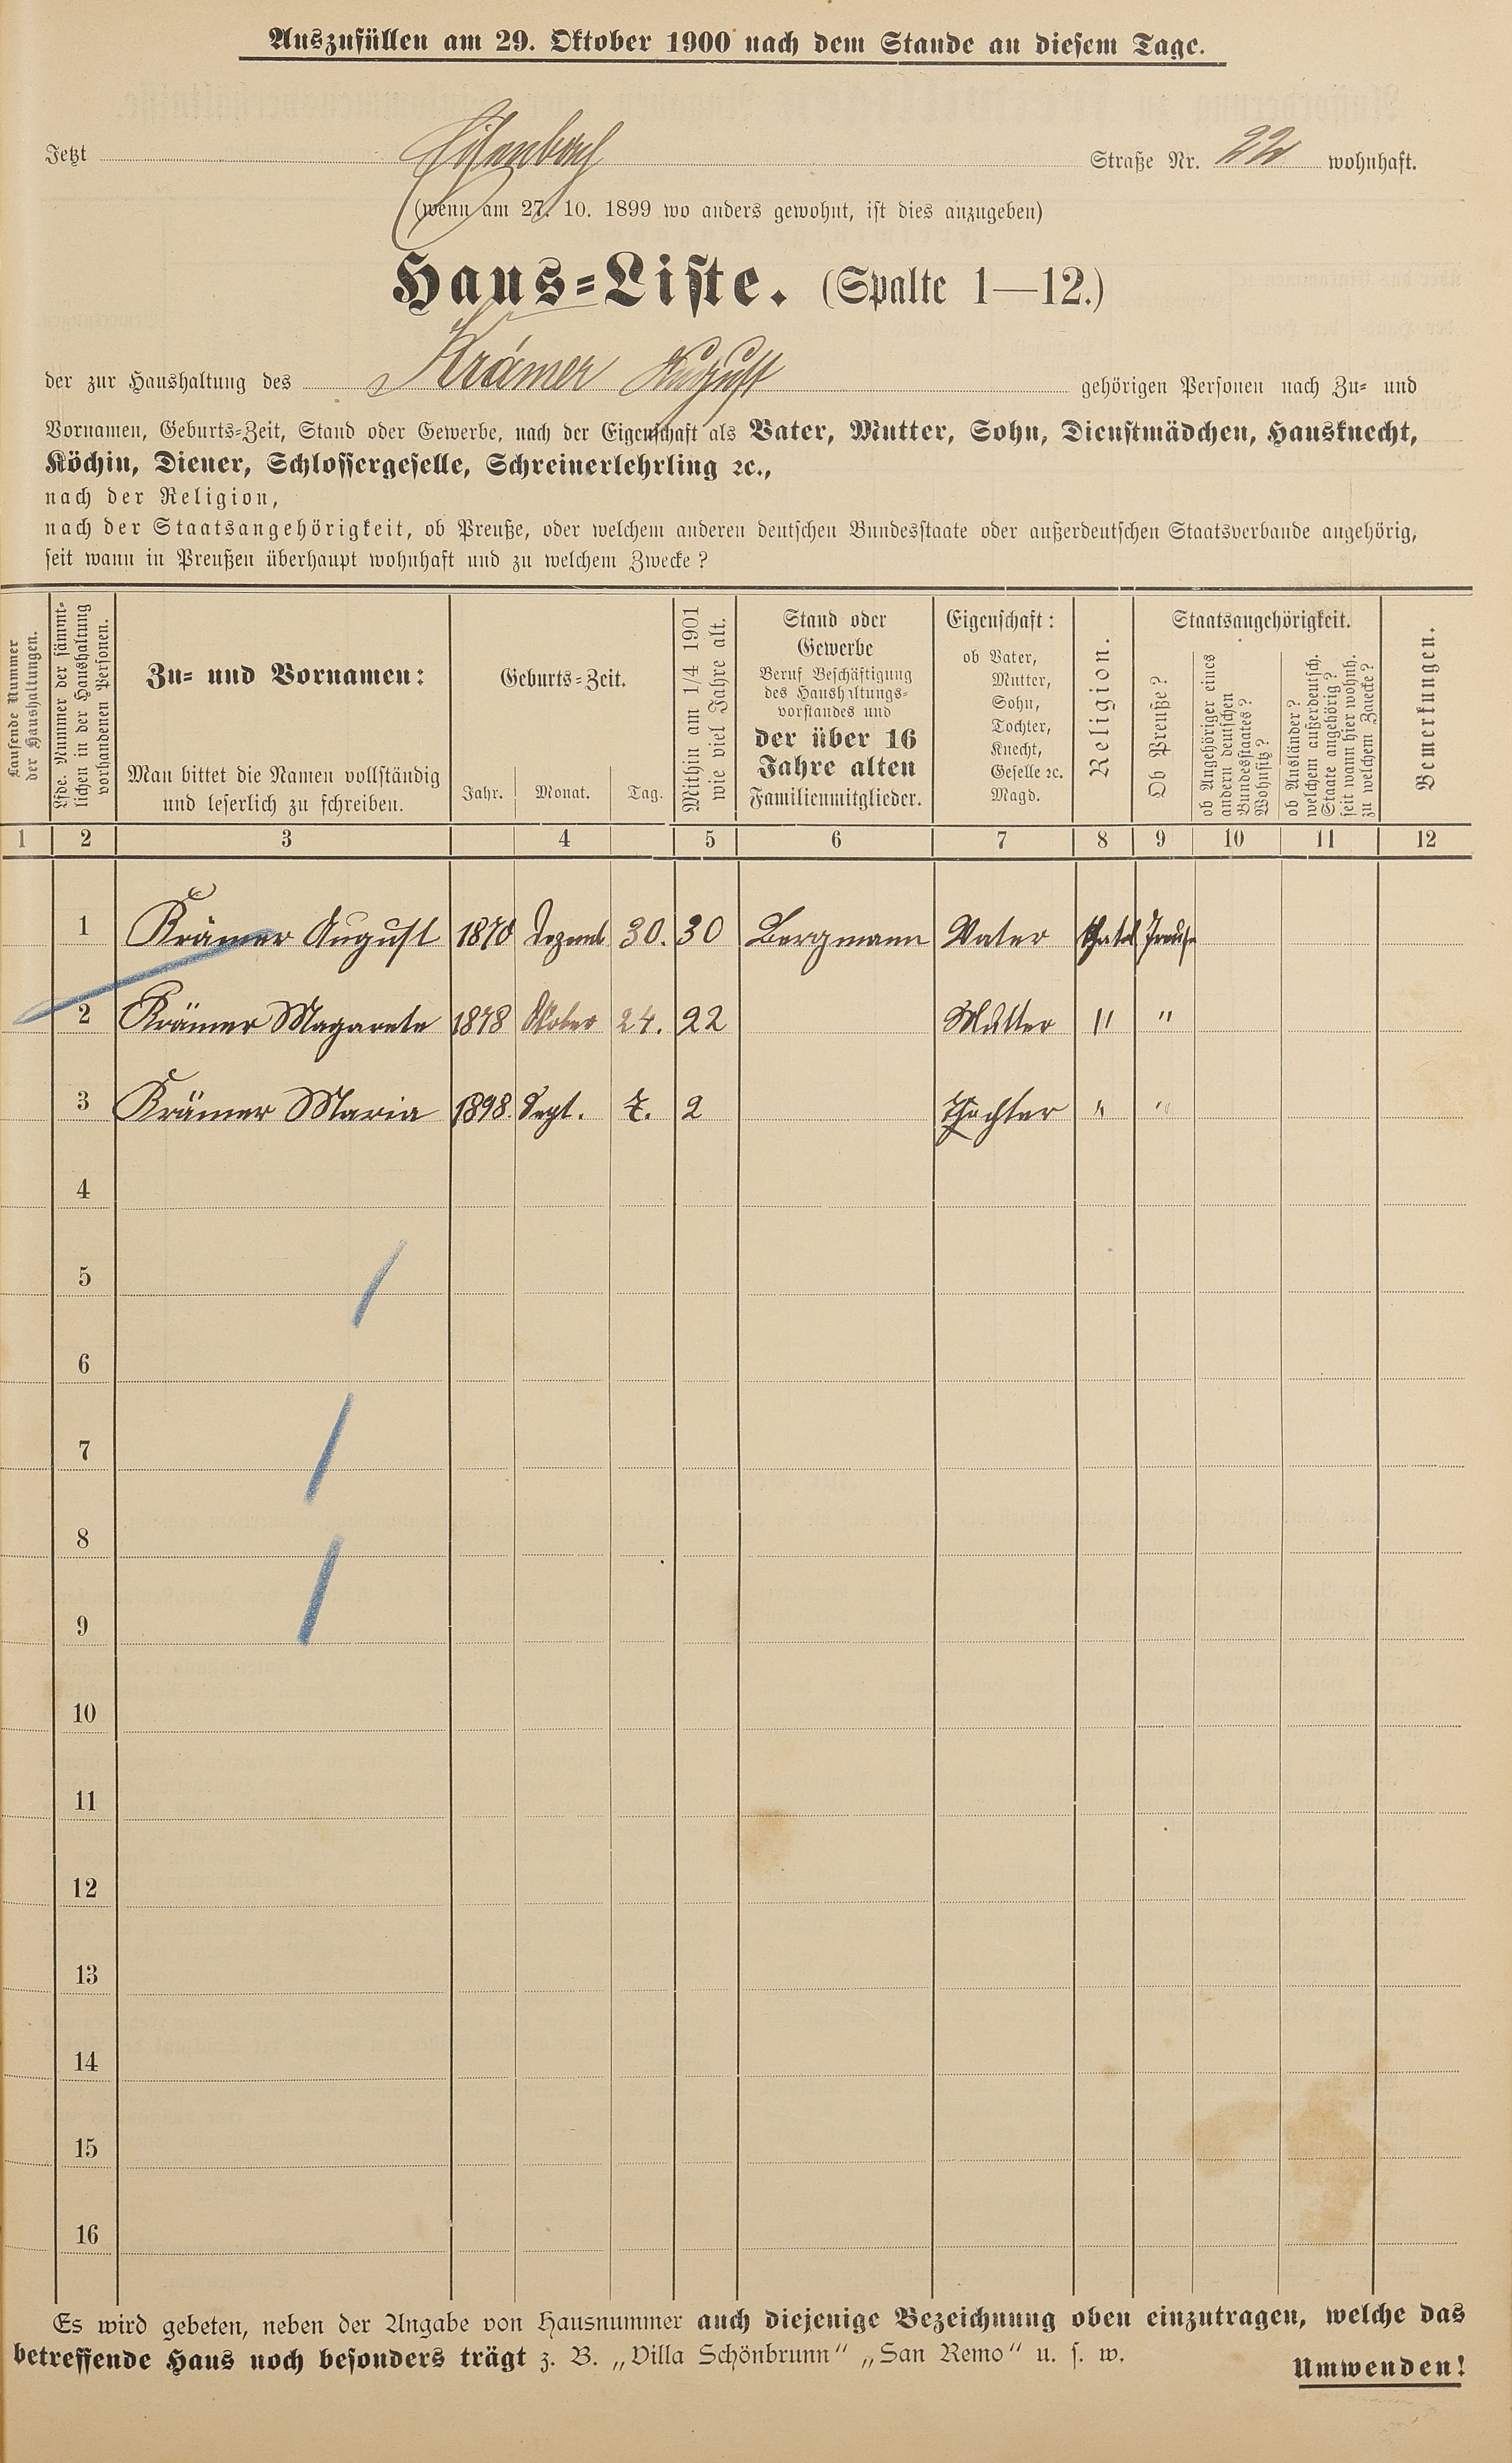 Auszufüllen am 29. Oktober 1900 nach dem Stande an diesem Tage.
Jetzt Eisenbach Straße Nr. 22 wohnhaft.
(wenn am 27. 10. 1899 wo anders gewohnt, ist dies anzugeben)
Haus-Liste. (Spalte 1—12.)
der zur Haushaltung des Krämer August gehörigen Personen nach Zu- und
Vornamen, Geburts-Zeit, Stand oder Gewerbe, nach der Eigenschaft als Vater, Mutter, Sohn, Dienstmädchen, Hausknecht,
Köchin, Diener, Schlossergeselle, Schreinerlehrling ꝛc.,
nach der Religion,
nach der Staatsangehörigkeit, ob Preuße, oder welchem anderen deutschen Bundesstaate oder außerdeutschen Staatsverbande angehörig,
seit wann in Preußen überhaupt wohnhaft und zu welchem Zwecke?
Laufende Nummer
der Haushaltungen.
Lfde. Nummer der sämmt-
lichen in der Haushaltung
vorhandenen Personen.
Zu- und Vornamen:
Man bittet die Namen vollständig
und leserlich zu schreiben.
Geburts-Zeit.
Jahr. Monat. Tag.
Mithin am 1/4 1901
wie viel Jahre alt.
Stand oder
Gewerbe
Beruf Beschäftigung
des Haushaltungs-
vorstandes und
der über 16
Jahre alten
Familienmitglieder.
Eigenschaft:
ob Vater,
Mutter,
Sohn,
Tochter,
Knecht,
Geselle ꝛc.
Magd.
Religion.
Staatsangehörigkeit.
Ob Preuße?
ob Angehöriger eines
andern deutschen
Bundesstaates?
Wohnsitz?
ob Ausländer?
welchem außerdeutsch.
Staate angehörig?
seit wann hier wohnh.
zu welchem Zwecke?
Bemerkungen.
1 2 3 4 5 6 7 8 9 10 11 12
1 Krämer August 1870 Dezemb 30. 30 Bergmann Vater Kathol Preuße
2 Krämer Magarete 1878 Oktober 24. 22 Mutter " "
3 Krämer Maria 1898. Sept. 7. 2 Thochter " "
4
5
6
7
8
9
10
11
12
13
14
15
16
Es wird gebeten, neben der Angabe von Hausnummer auch diejenige Bezeichnung oben einzutragen, welche das
betreffende Haus noch besonders trägt z. B. „Villa Schönbrunn“ „San Remo“ u. s. w.
Umwenden!